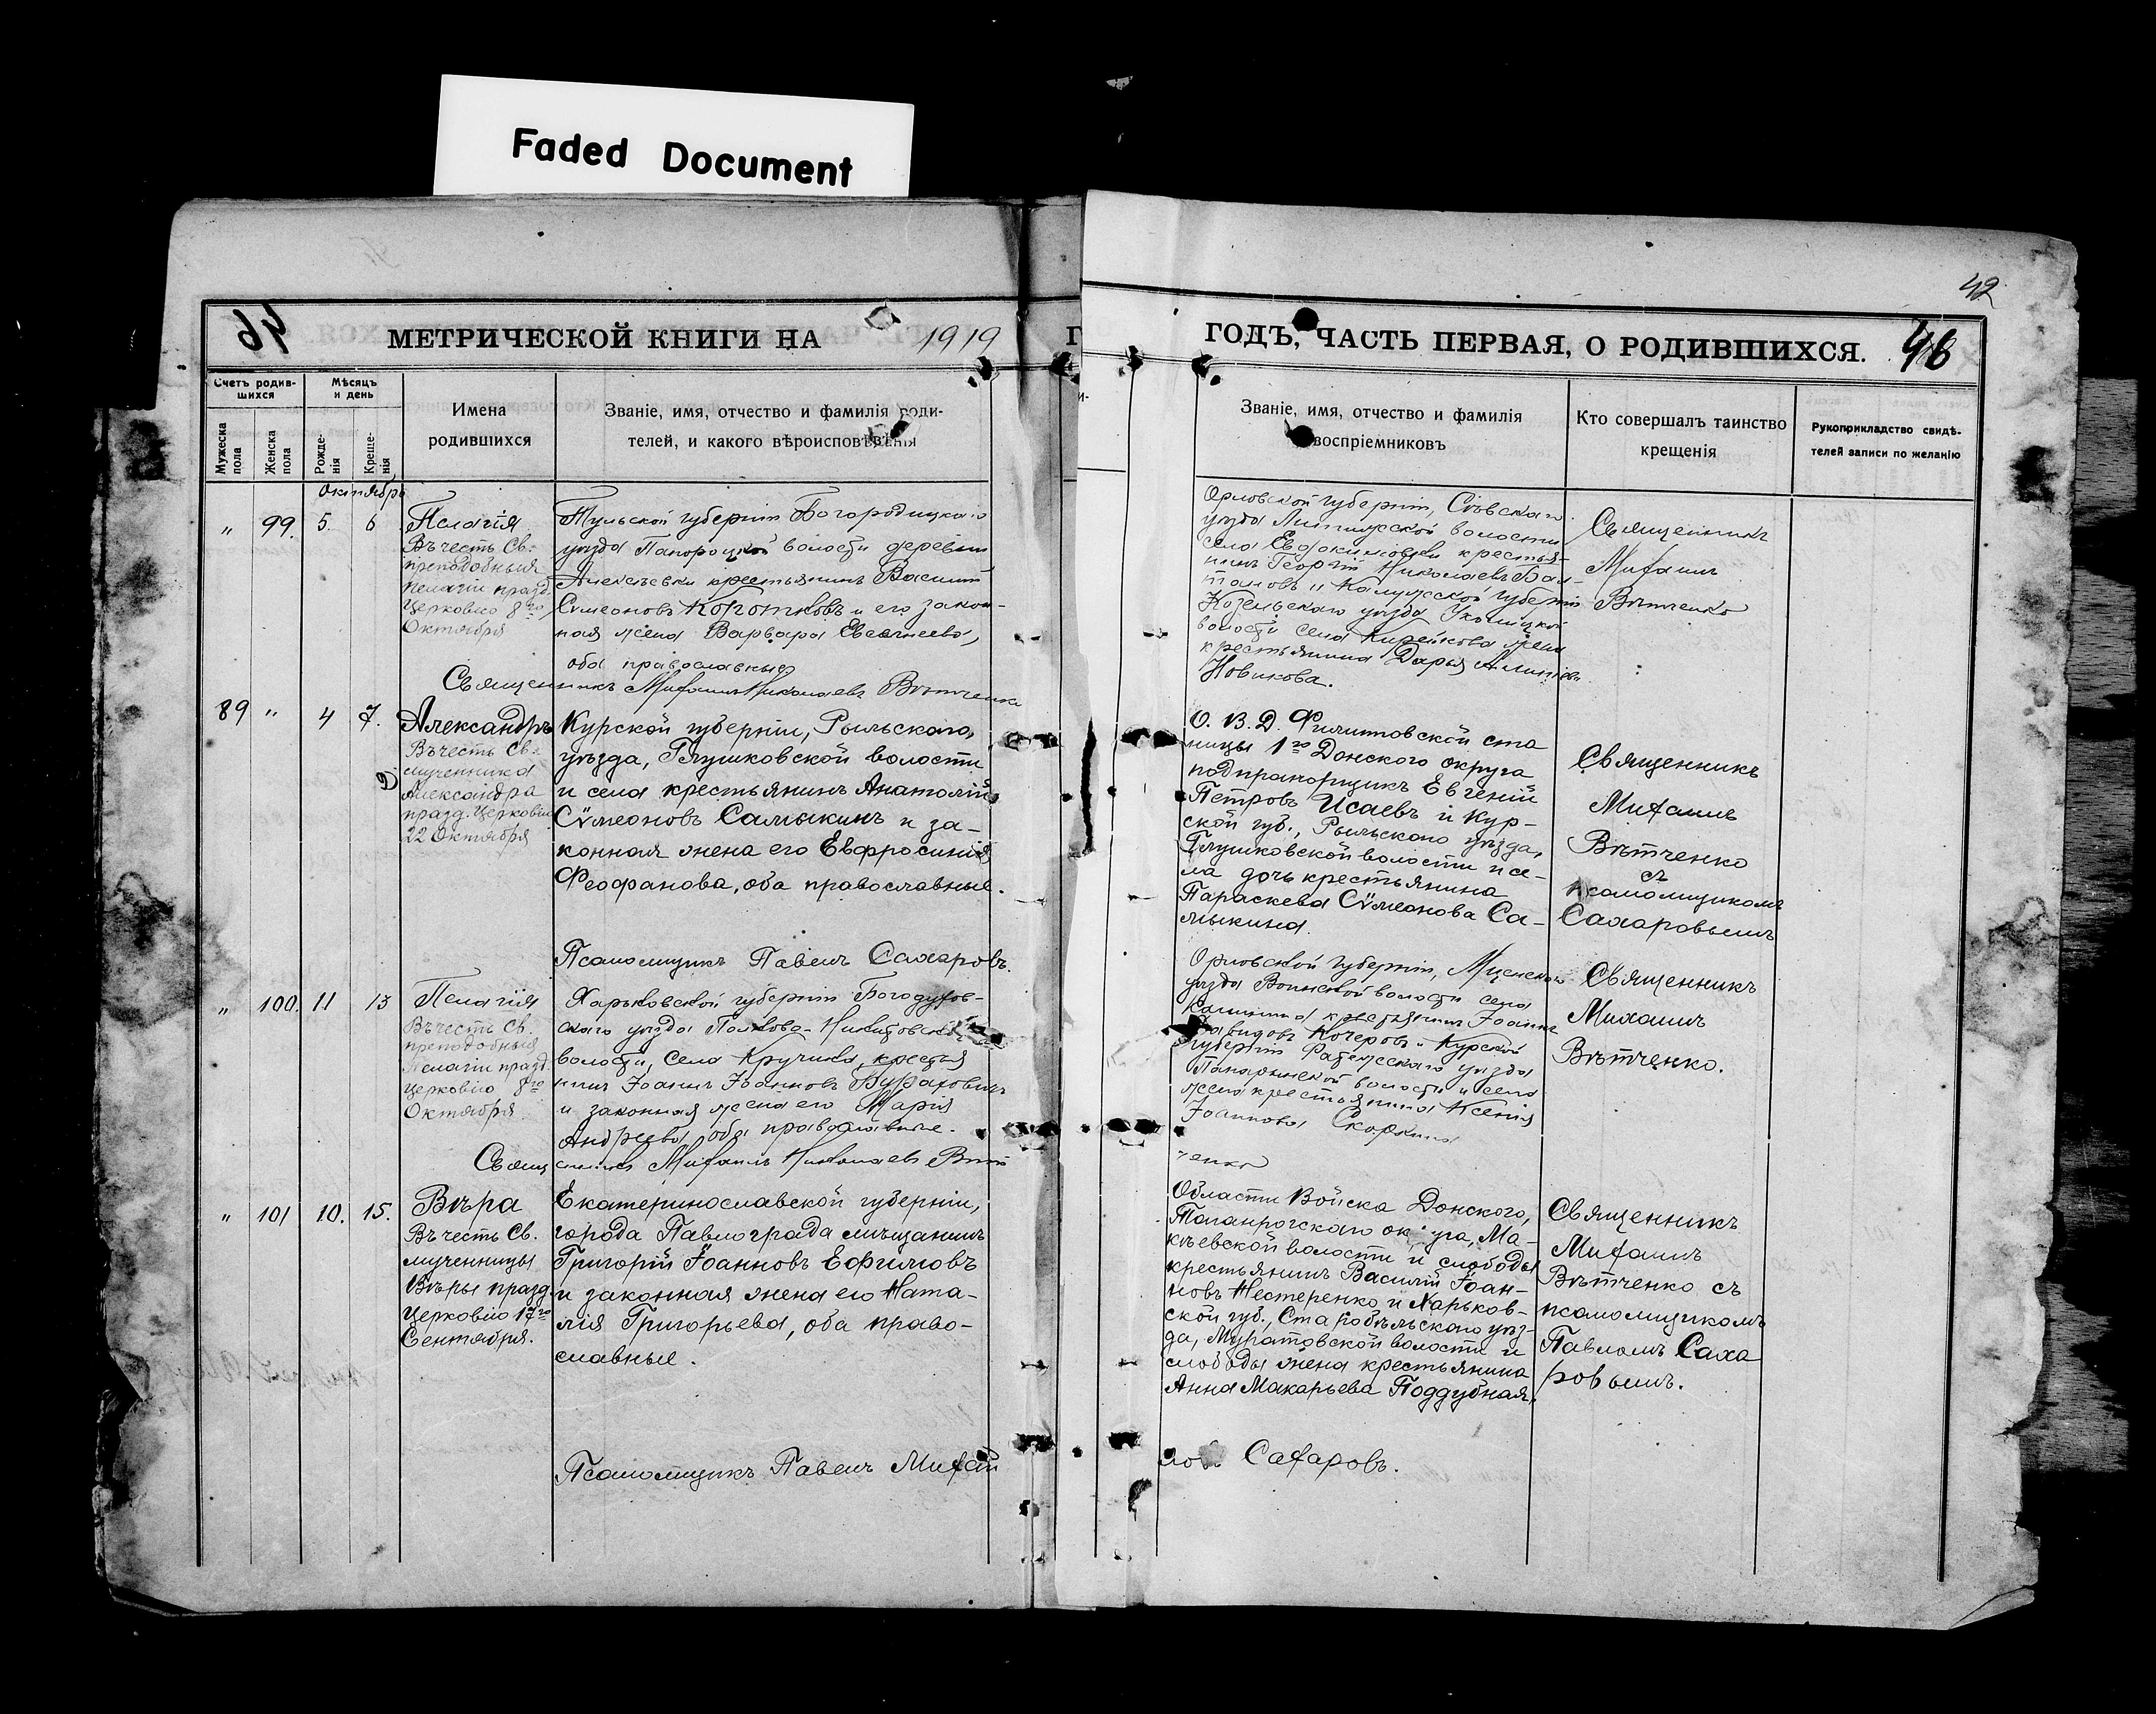 Faded Document
42
46
МЕТРИЧЕСКОЙ КНИГИ НА 1919
ГОДЪ, ЧАСТЬ ПЕРВАЯ, О РОДИВШИХСЯ. 46
Счетъ родив-
шихся
Мужеска
пола
Женска
пола
Мѣсяцъ
и день
Рожде-
нія
Креще-
нія
Имена
родившихся
Званіе, имя, отчество и фамилія роди-
телей, и какого вѣроисповѣданія
Званіе, имя, отчество и фамилія
воспріемниковъ
Кто совершалъ таинство
крещенія
Рукоприкладство свидѣ-
телей записи по желанію
Октября
„ 99. 5. 6
Пелагія
Въ честь Св.
преподобныя
Пелагіи празд.
Церковію 8го
Октября
Тульской губерніи Богородицкаго
уѣзда волости деревни
Алексѣевки крестьянинъ Василій
Сѵмеоновъ Коротковъ и его закон-
ная жена Варвара
оба православные
Священникъ Михаилъ Николаевъ Вѣтченко
Орловской губерніи, Сѣвскаго
уѣзда волости
села Евдокимовки крестья-
нинъ Георгій Николаевъ
и Калужской губерніи
Козельскаго уѣзда
волости села Кирейкова жена
крестьянина Дарья
Новикова.
Священникъ
Михаилъ
Вѣтченко
89 „ 4 7.
Александръ
Въ честь Св.
мученника
Александра
празд. Церковію
22 Октября
Курской губерніи, Рыльскаго,
уѣзда, Глушковской волости
и села крестьянинъ Анатолій
Сѵмеоновъ Самыкинъ и за-
конная жена его Евфросинія
Феофанова, оба православные.
Псаломщикъ Павелъ Сахаровъ.
О. В. Д. Филипповской ста
ницы 1го Донского округа
подпрапорщикъ Евгеній
Петровъ Исаевъ и Кур-
ской губ., Рыльскаго уѣзда,
Глушковской волости и се-
ла дочь крестьянина
Параскева Сѵмеонова Са-
мыкина.
Священникъ
Михаилъ
Вѣтченко
съ
псаломщикомъ
Сахаровымъ
„ 100. 11 13
Пелагія
Въ честь Св.
преподобныя
Пелагіи празд.
церковію 8го
Октября
Харьковской губерніи Богодухов-
скаго уѣзда
волости, села крестья
нинъ Іоаннъ Іоанновъ
и законная жена его Марія
Андреева, оба православные.
Священникъ Михаилъ Николаевъ Вѣт
ченко
Орловской губерніи, Мценскаго
уѣзда волости села
крестьянинъ Іоаннъ
Давидовъ Кочеровъ и Курской
губерніи Фатежскаго уѣзда
волости и села
жена крестьянина Ксенія
Іоаннова
Священникъ
Михаилъ
Вѣтченко.
„ 101 10. 15.
Вѣра
Въ честь Св.
мученницы
Вѣры празд.
Церковію 17го
Сентября.
Екатеринославской губерніи,
города Павлограда мѣщанинъ
Григорій Іоанновъ Ефимовъ
и законная жена его Ната-
лія Григорьева, оба право-
славные.
Области Войска Донского,
Таганрогскаго округа, Ма-
кѣевской волости и слободы
крестьянинъ Василій Іоан-
новъ Нестеренко и Харьков-
ской губ., Старобѣльскаго уѣз-
да, Муратовской волости и
слободы жена крестьянина
Анна Макарьева Поддубная.
Священникъ
Михаилъ
Вѣтченко съ
псаломщикомъ
Павломъ Саха
ровымъ.
Псаломщикъ Павелъ Михай
ловъ Сахаровъ.